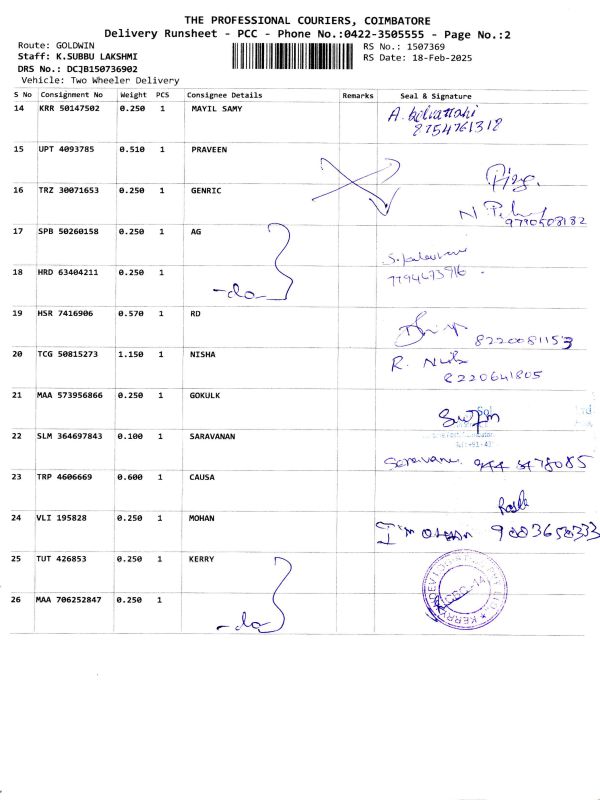 THE PROFESSIONAL COURIERS, COIMBATORE
Delivery Runsheet - PCC - Phone No.:0422-3505555 - Page No.:2
Route: GOLDWIN
RS No.: 1507369
Staff: K.SUBBU LAKSHMI
RS Date: 18-Feb-2025
DRS No.: DCJB150736902
Vehicle: Two Wheeler Delivery
S No Consignment No Weight PCS Consignee Details Remarks Seal & Signature
14 KRR 50147502 0.250 1 MAYIL SAMY
8754761312
15 UPT 4093785 0.510 1 PRAVEEN
16 TRZ 30071653 0.250 1 GENRIC
17 SPB 50260158 0.250 1 AG
18 HRD 63404211 0.250 1 -do
19 HSR 7416906 0.570 1 RD
8220081153
20 TCG 50815273 1.150 1 NISHA
8220641805
21 MAA 573956866 0.250 1 GOKULK
22 SLM 364697843 0.100 1 SARAVANAN
23 TRP 4606669 0.600 1 CAUSA
24 VLI 195828 0.250 1 MOHAN
25 TUT 426853 0.250 1 KERRY
26 MAA 706252847 0.250 1 -do